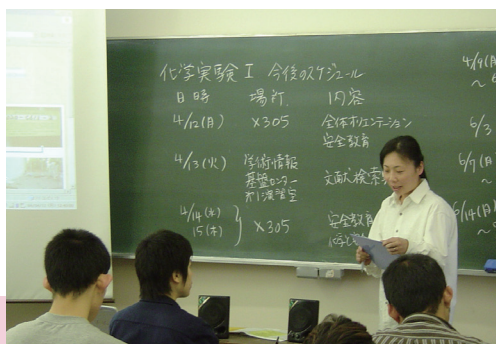 化学実験 I 今後のスケジュール
日時 場所 内容
4/12(月) X305 全体オリエンテーション
安全教育
4/13(火) 学術情報
基盤センター
文献検索
4/14(水)
15(木) X305 安全教育
4/9(月
6/3
6/7(月
6/14(月)